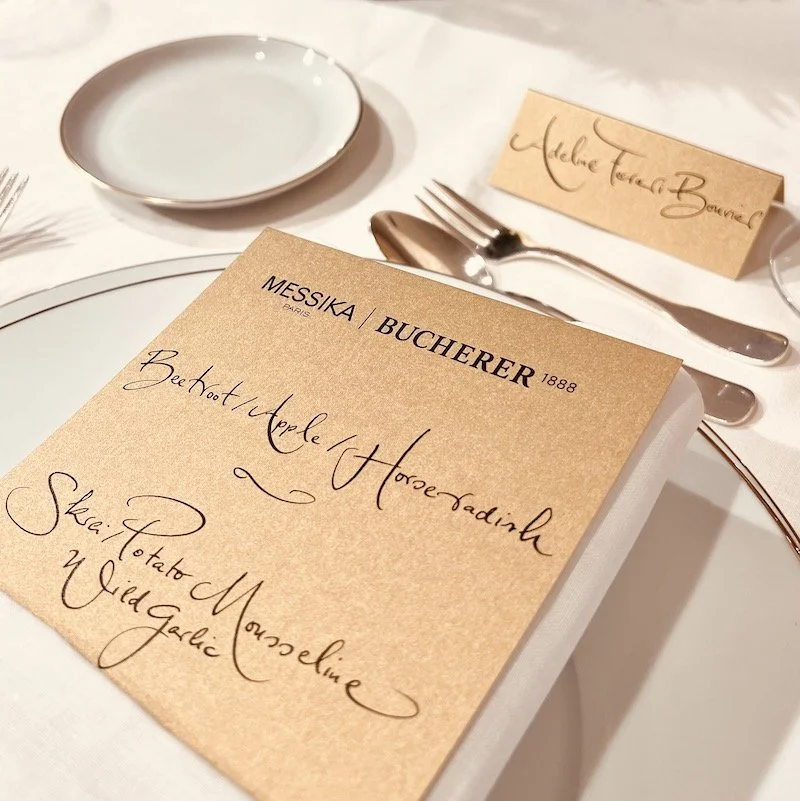 Adeline Ferari-Bouvier
MESSIKA | BUCHERER 1888
PARIS
Beetroot / Apple / Horse-radish
Skrei, Potato Mousseline
Wild Garlic